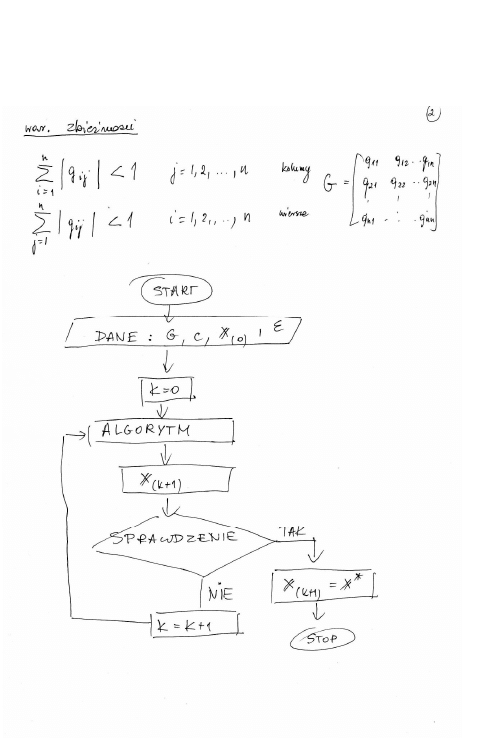 ②
war. zbieżności
n ∑ i=1 |gij| < 1 j = 1, 2, ..., n kolumny
n ∑ j=1 |gij| < 1 i = 1, 2, ..., n wiersze
G = [ g11 g12 .. g1n
g21 g22 .. g2n
gn1 . . . gnn ]
START
DANE : G, c, x(0), ε
K=0
ALGORYTM
x(k+1)
SPRAWDZENIE
TAK
NIE
x(k+1) = x*
k = k+1
STOP